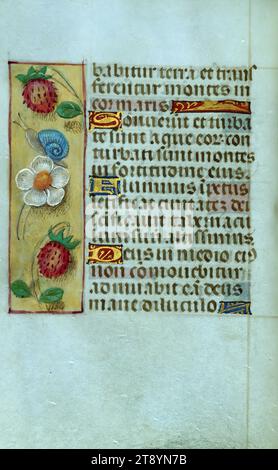 babitur terra et trans
ferentur montes in
cor maris.
Sonuerūt et turba
te sunt aque eor. con
turbati sunt montes
in fortitudine eius.
Fluminis īpetus
letificat ciuitatez dei
scificauit tabernacu
lum suum altissimus
Deus in medio ei9
non comouebitur
adiuuabit eā deus
mane diluculo
alamy stock photo
2T8YN7B